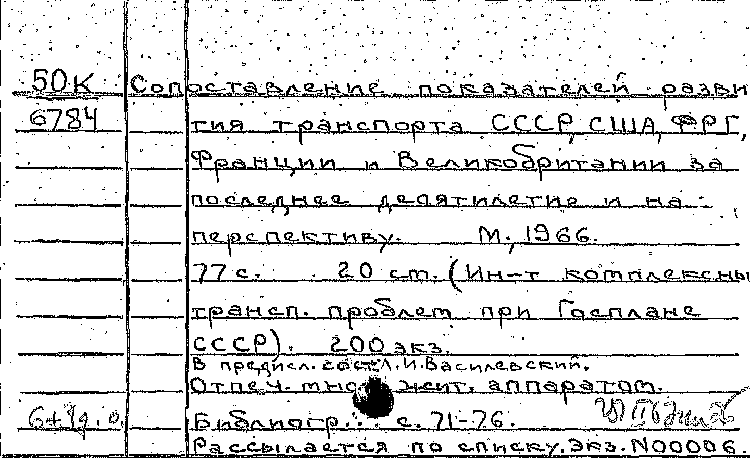 50К Сопоставление показателей разви
6784 тия транспорта СССР, США, ФРГ,
Франции и Великобритании за
последнее десятилетие и на
перспективу. М., 1966.
77 с. 20 см. (Ин-т комплексны
трансп. проблем при Госплане
СССР). 200 экз.
В предисл. сост. Л.И. Василевский.
Отпеч. множит. аппаратом.
Библиогр.: с. 71-76.
Рассылается по списку. Экз. N00006.